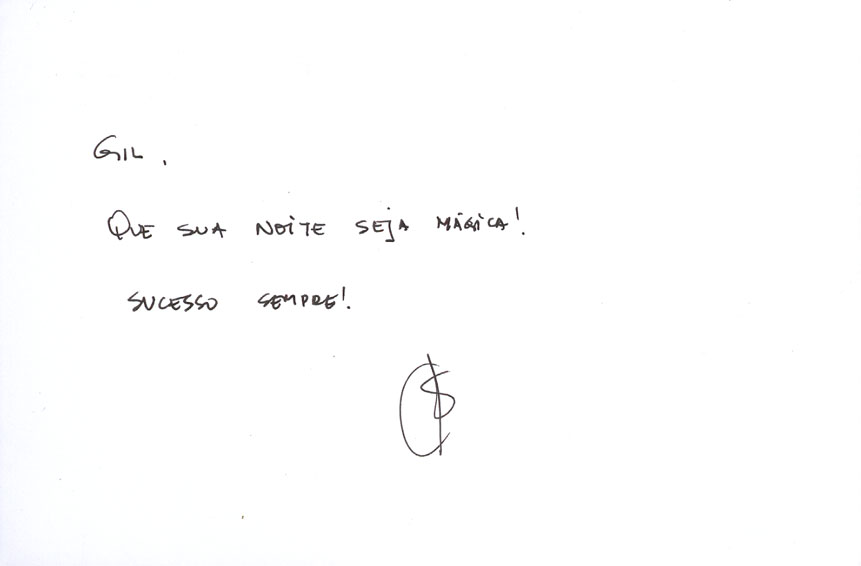 GIL,
QUE SUA NOITE SEJA MÁGICA!
SUCESSO SEMPRE!